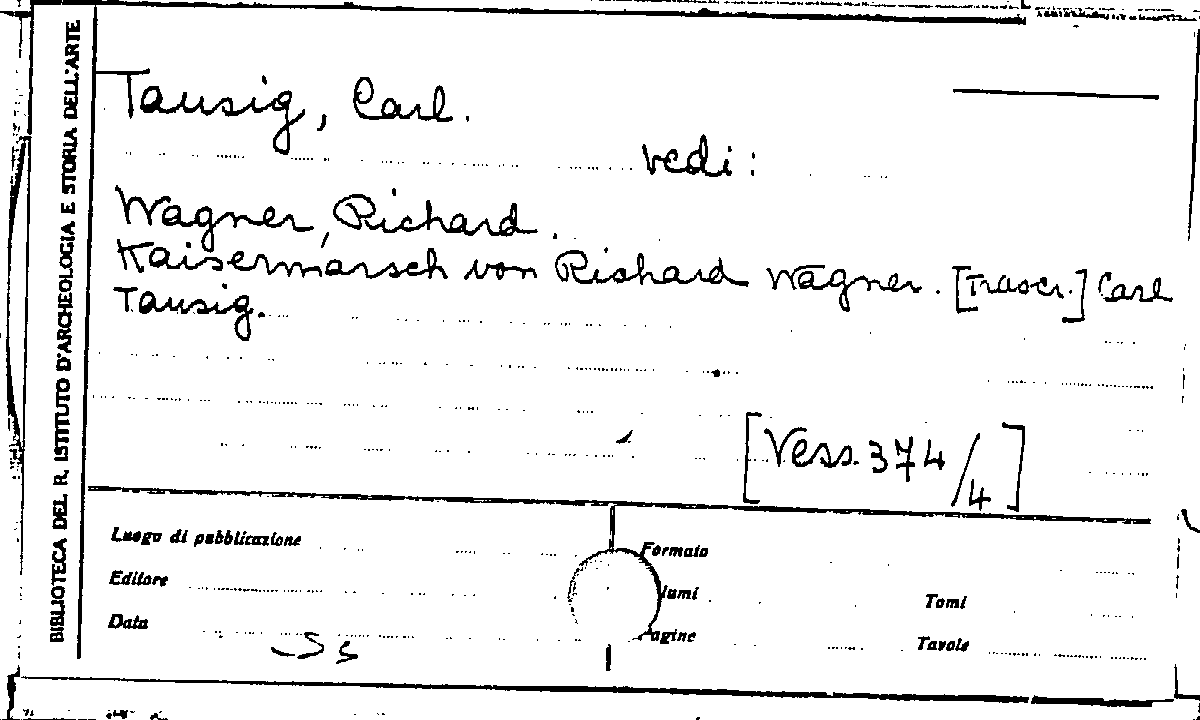 BIBLIOTECA DEL R. ISTITUTO D'ARCHEOLOGIA E STORIA DELL'ARTE
Tausig, Carl.
vedi:
Wagner, Richard.
Kaisermarsch von Richard Wagner. [Trascr.] Carl
Tausig.
[Vess. 374/4]
Luogo di pubblicazione
Formato
Editore
lumi
Tomi
Data
agine
Tavole